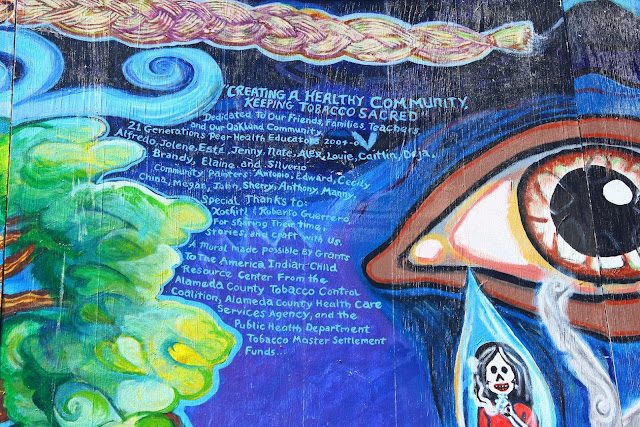 CREATING A HEALTHY COMMUNITY,
KEEPING TOBACCO SACRED
Dedicated To Our Friends, Families, Teachers,
and Our Oakland Community,
21 Generations Peer Health Educators 2004-
Alfredo, Jolene, Esté, Jenny, Nate, Alex, Louie, Caitlin, Deja,
Brandy, Elaine, and Silverio
Community Painters: Antonio, Edward, Cecily
China, Megan, John, Sherry, Anthony, Manny,
Special Thanks to:
Xochitl & Roberto Guerrero,
For sharing Their time,
Stories, and Craft with Us.
A mural made possible By Grants
To The America Indian Child
Resource Center From the
Alameda County Tobacco Control
Coalition, Alameda County Health Care
Services Agency, and the
Public Health Department
Tobacco Master Settlement
Funds...